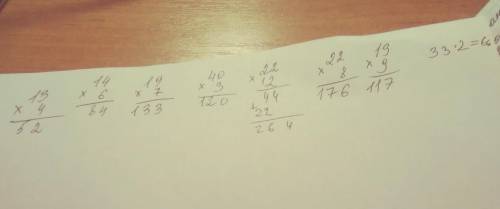 13
× 4
52
14
× 6
84
19
× 7
133
40
× 3
120
22
× 12
44
+ 22
26 4
22
× 8
176
13
× 9
117
33·2=